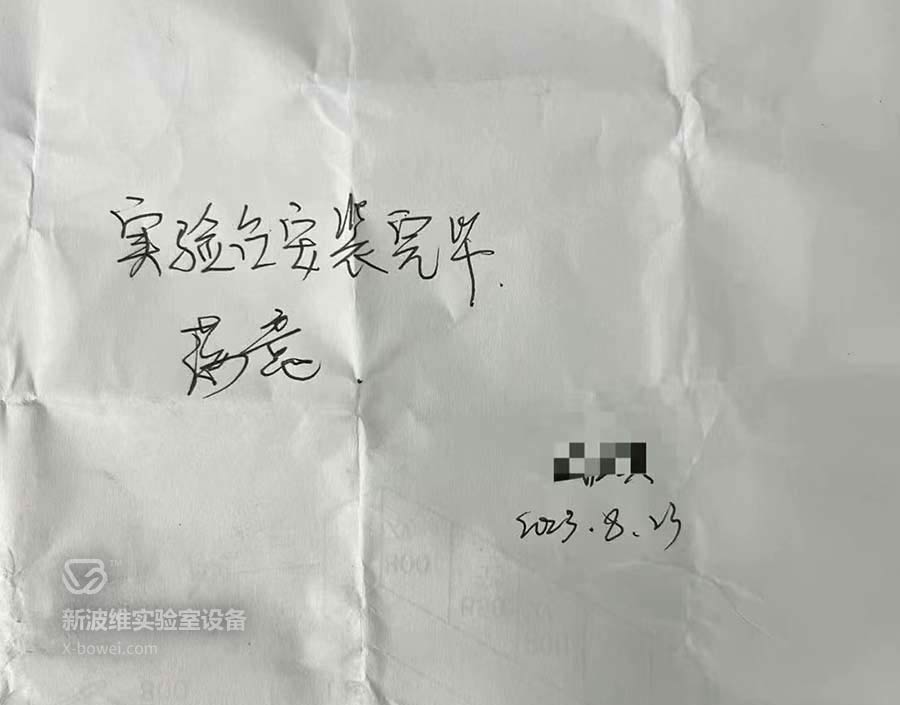 实验台安装完毕.
2023.8.23
新波维实验室设备
X-bowei.com